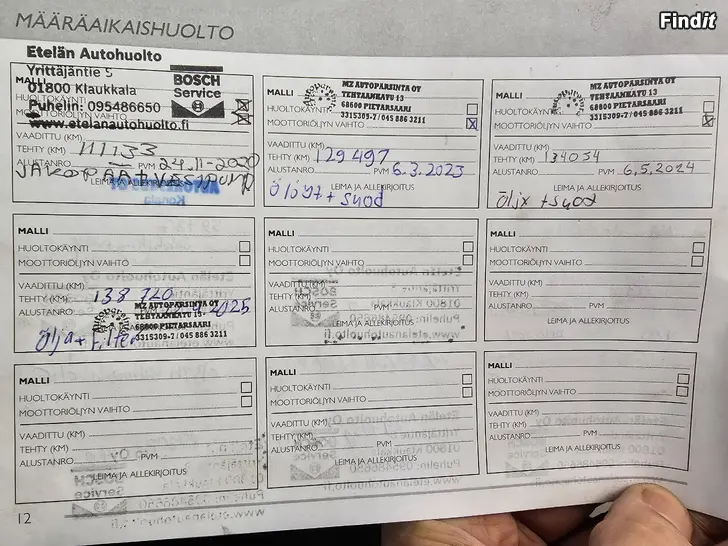 Findit
MÄÄRÄAIKAISHUOLTO
Etelän Autohuolto
Yrittäjäntie 5
01800 Klaukkala
Puhelin: 095486650
www.etelanautohuolto.fi
BOSCH
Service
MALLI
HUOLTOKÄYNTI
MOOTTORIÖLJYN VAIHTO
VAADITTU (KM)
TEHTY (KM) 111133
ALUSTANRO PVM 24.11-2020
JAKOPÄÄ + VESIPUMP
LEIMA JA ALLEKIRJOITUS
MALLI
MZ AUTOPARSINTA OY
TEHTAANKATU 13
68600 PIETARSAARI
3315309-7 / 045 886 3211
HUOLTOKÄYNTI
MOOTTORIÖLJYN VAIHTO
VAADITTU (KM)
TEHTY (KM) 129 497
ALUSTANRO PVM 6.3.2023
LEIMA JA ALLEKIRJOITUS
MALLI
MZ AUTOPARSINTA OY
TEHTAANKATU 13
68600 PIETARSAARI
3315309-7 / 045 886 3211
HUOLTOKÄYNTI
MOOTTORIÖLJYN VAIHTO
VAADITTU (KM)
TEHTY (KM) 134054
ALUSTANRO PVM 6.5.2024
LEIMA JA ALLEKIRJOITUS
MALLI
HUOLTOKÄYNTI
MOOTTORIÖLJYN VAIHTO
VAADITTU (KM)
TEHTY (KM) 138 720
ALUSTANRO 2025
MZ AUTOPARSINTA OY
TEHTAANKATU 13
68600 PIETARSAARI
3315309-7 / 045 886 3211
Öljx + Filter
MALLI
HUOLTOKÄYNTI
MOOTTORIÖLJYN VAIHTO
VAADITTU (KM)
TEHTY (KM)
ALUSTANRO PVM
LEIMA JA ALLEKIRJOITUS
MALLI
HUOLTOKÄYNTI
MOOTTORIÖLJYN VAIHTO
VAADITTU (KM)
TEHTY (KM)
ALUSTANRO PVM
LEIMA JA ALLEKIRJOITUS
MALLI
HUOLTOKÄYNTI
MOOTTORIÖLJYN VAIHTO
VAADITTU (KM)
TEHTY (KM)
ALUSTANRO PVM
LEIMA JA ALLEKIRJOITUS
MALLI
HUOLTOKÄYNTI
MOOTTORIÖLJYN VAIHTO
VAADITTU (KM)
TEHTY (KM)
ALUSTANRO PVM
LEIMA JA ALLEKIRJOITUS
MALLI
HUOLTOKÄYNTI
MOOTTORIÖLJYN VAIHTO
VAADITTU (KM)
TEHTY (KM)
ALUSTANRO PVM
LEIMA JA ALLEKIRJOITUS
12